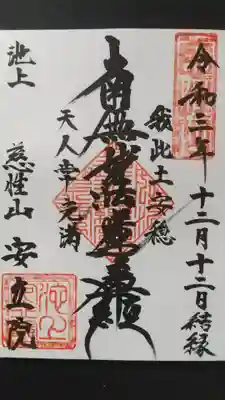 令和三年
十二月十二日結縁
我此土安穏
南無妙法蓮華経
天人常充満
池上
慈性山
安立院